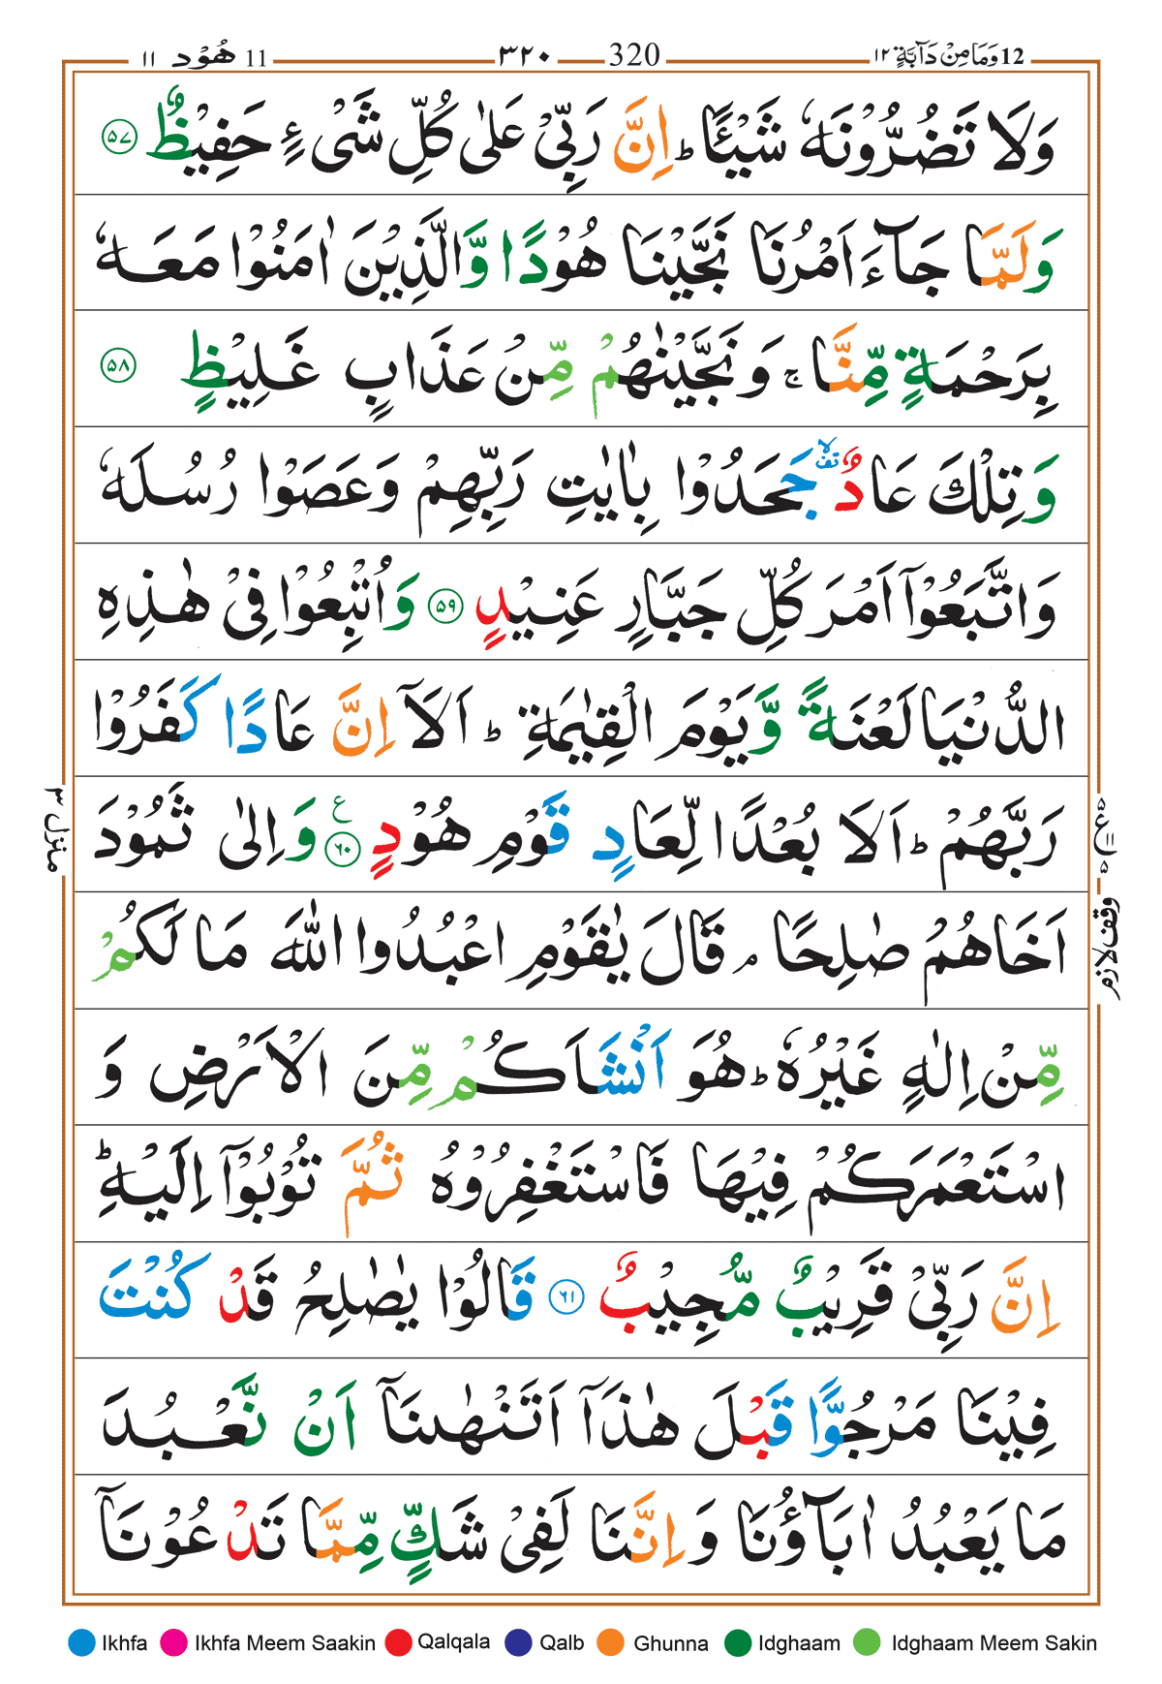 12 وَمَا مِنْ دَآبَّةٍ ١٢ 320 ٣٢٠ 11 هُوْد ١١
وَلَا تَضُرُّوْنَهٗ شَيْـًٔا ؕ اِنَّ رَبِّىْ عَلٰى كُلِّ شَىْءٍ حَفِيْظٌ ۝۵۷
وَلَمَّا جَآءَ اَمْرُنَا نَجَّيْنَا هُوْدًا وَّالَّذِيْنَ اٰمَنُوْا مَعَهٗ
بِرَحْمَةٍ مِّنَّا ۚ وَنَجَّيْنٰهُمْ مِّنْ عَذَابٍ غَلِيْظٍ ۝۵۸
وَتِلْكَ عَادٌ ۙ جَحَدُوْا بِاٰيٰتِ رَبِّهِمْ وَعَصَوْا رُسُلَهٗ
وَاتَّبَعُوْۤا اَمْرَ كُلِّ جَبَّارٍ عَنِيْدٍ ۝۵۹ وَاُتْبِعُوْا فِىْ هٰذِهِ
الدُّنْيَا لَعْنَةً وَّيَوْمَ الْقِيٰمَةِ ؕ اَلَاۤ اِنَّ عَادًا كَفَرُوْا
رَبَّهُمْ ؕ اَلَا بُعْدًا لِّعَادٍ قَوْمِ هُوْدٍ ۝۶۰ ع وَاِلٰى ثَمُوْدَ
اَخَاهُمْ صٰلِحًا ۘ قَالَ يٰقَوْمِ اعْبُدُوا اللّٰهَ مَا لَكُمْ
مِّنْ اِلٰهٍ غَيْرُهٗ ؕ هُوَ اَنْشَاَكُمْ مِّنَ الْاَرْضِ وَ
اسْتَعْمَرَكُمْ فِيْهَا فَاسْتَغْفِرُوْهُ ثُمَّ تُوْبُوْۤا اِلَيْهِ ؕ
اِنَّ رَبِّىْ قَرِيْبٌ مُّجِيْبٌ ۝۶۱ قَالُوْا يٰصٰلِحُ قَدْ كُنْتَ
فِيْنَا مَرْجُوًّا قَبْلَ هٰذَاۤ اَتَنْهٰىنَاۤ اَنْ نَّعْبُدَ
مَا يَعْبُدُ اٰبَآؤُنَا وَاِنَّنَا لَفِىْ شَكٍّ مِّمَّا تَدْعُوْنَاۤ
منزل ٣
وقف لازم
Ikhfa Ikhfa Meem Saakin Qalqala Qalb Ghunna Idghaam Idghaam Meem Sakin